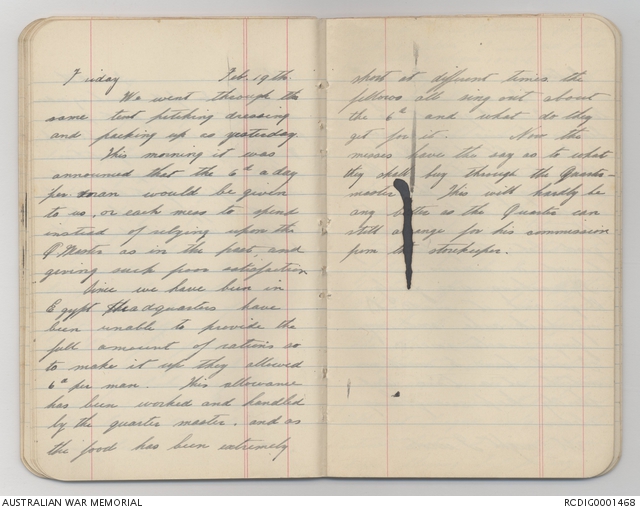 Friday Feb. 19th.
We went through the
same tent pitching dressing
and packing up as yesterday.
This morning it was
announced that the 6d a day
per man would be given
to us, or each mess to spend
instead of relying upon the
Q. Masts as in the past, and
giving such poor satisfaction
Since we have been in
Egypt Headquarters have
been unable to provide the
full amount of rations so
to make it up they allowed
6d per man. This allowance
has been worked and handled
by the quarter master, and as
the food has been extremely
short at different times the
fellows all sing out about
the 6d and what do they
get for it. Now the
messes have the say as to what
they shall buy through the Quarter-
master. This will hardly be
any better as the Quarter can
still arrange for his commission
from the storekeeper.
AUSTRALIAN WAR MEMORIAL
RCDIG0001468